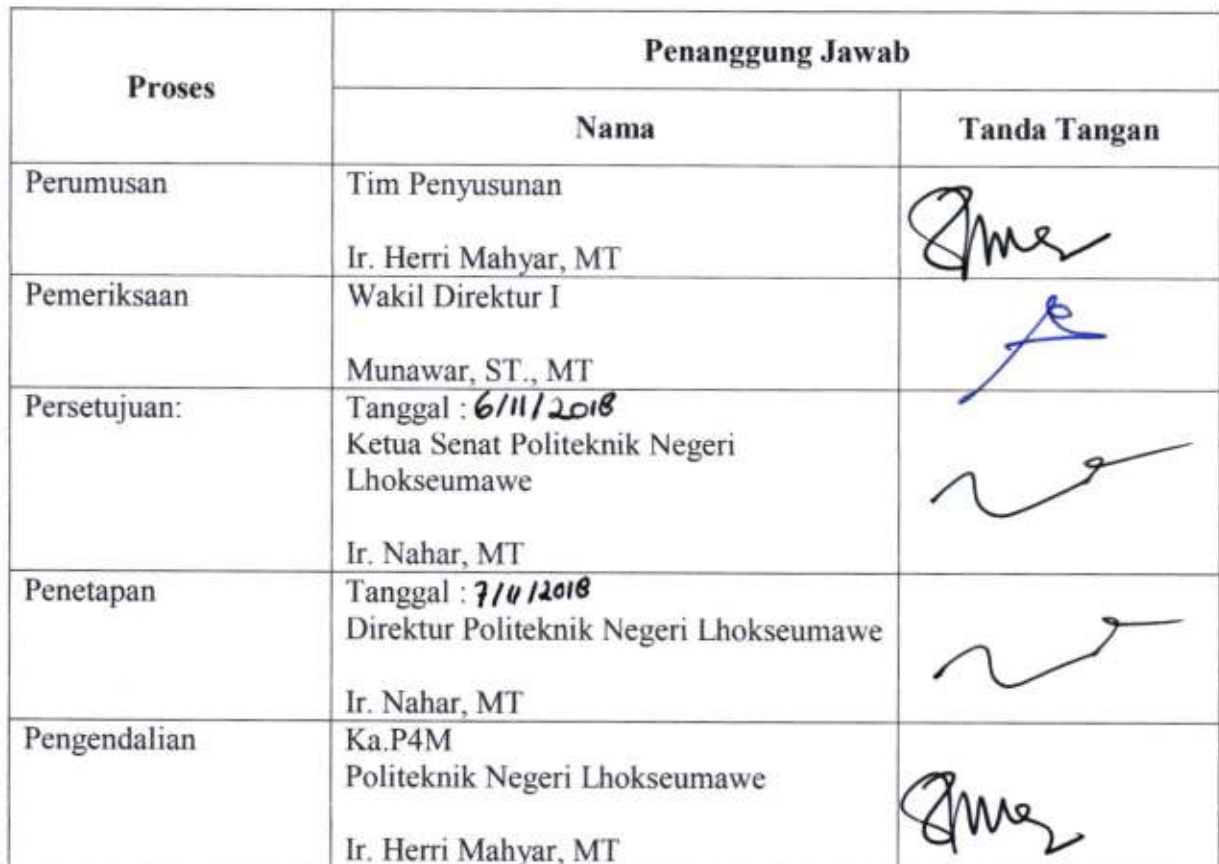 Proses
Penanggung Jawab
Nama
Tanda Tangan
Perumusan
Tim Penyusunan
Ir. Herri Mahyar, MT
Pemeriksaan
Wakil Direktur I
Munawar, ST., MT
Persetujuan:
Tanggal : 6/11/2018
Ketua Senat Politeknik Negeri
Lhokseumawe
Ir. Nahar, MT
Penetapan
Tanggal : 7/11/2018
Direktur Politeknik Negeri Lhokseumawe
Ir. Nahar, MT
Pengendalian
Ka.P4M
Politeknik Negeri Lhokseumawe
Ir. Herri Mahyar, MT